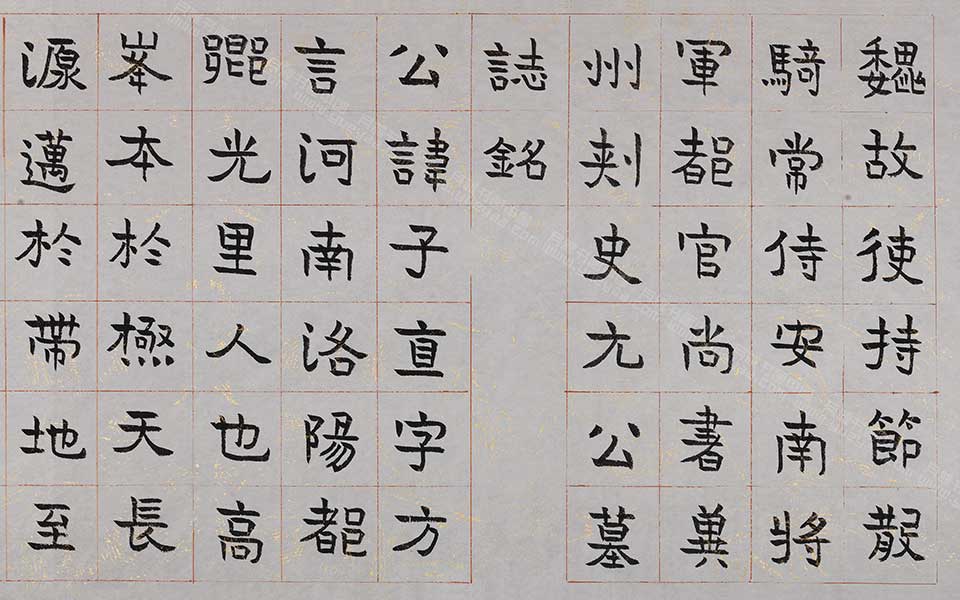 魏故使持節散
騎常侍安南將
軍都官尚書兾
州刾史元公墓
誌銘
公諱子直字方
言河南洛陽都
鄉光里人也高
峯本於極天長
源邁於帶地至